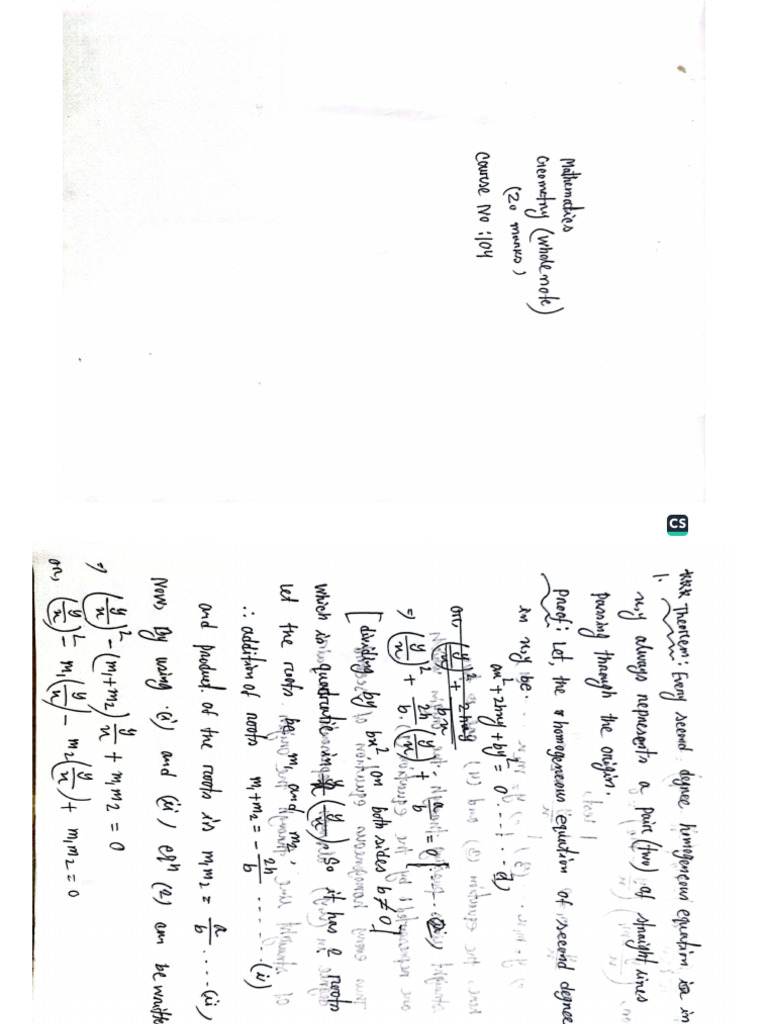 Mathematics
Geometry (whole note)
(20 marks)
Course No: 104
CS
*** Theorem: Every second degree homogeneous equation in
1.
x,y always represents a pair (two) of straight lines
passing through the origin.
Proof: Let, the homogeneous equation of second degree
in x,y be
ax² + 2hxy + by² = 0 ... (1)
⇒ (y/x)² + 2h/b (y/x) + a/b = 0
[dividing by bx², on both sides b ≠ 0]
which is quadratic in (y/x). So it has 2 roots
Let the roots be m₁ and m₂,
∴ addition of roots m₁+m₂ = - 2h/b ...... (i)
and product of the roots is m₁m₂ = a/b .... (ii)
Now, by using (i) and (ii), eqⁿ (2) can be
⇒ (y/x)² - (m₁+m₂) y/x + m₁m₂ = 0
or, (y/x)² - m₁(y/x) - m₂(y/x) + m₁m₂ = 0